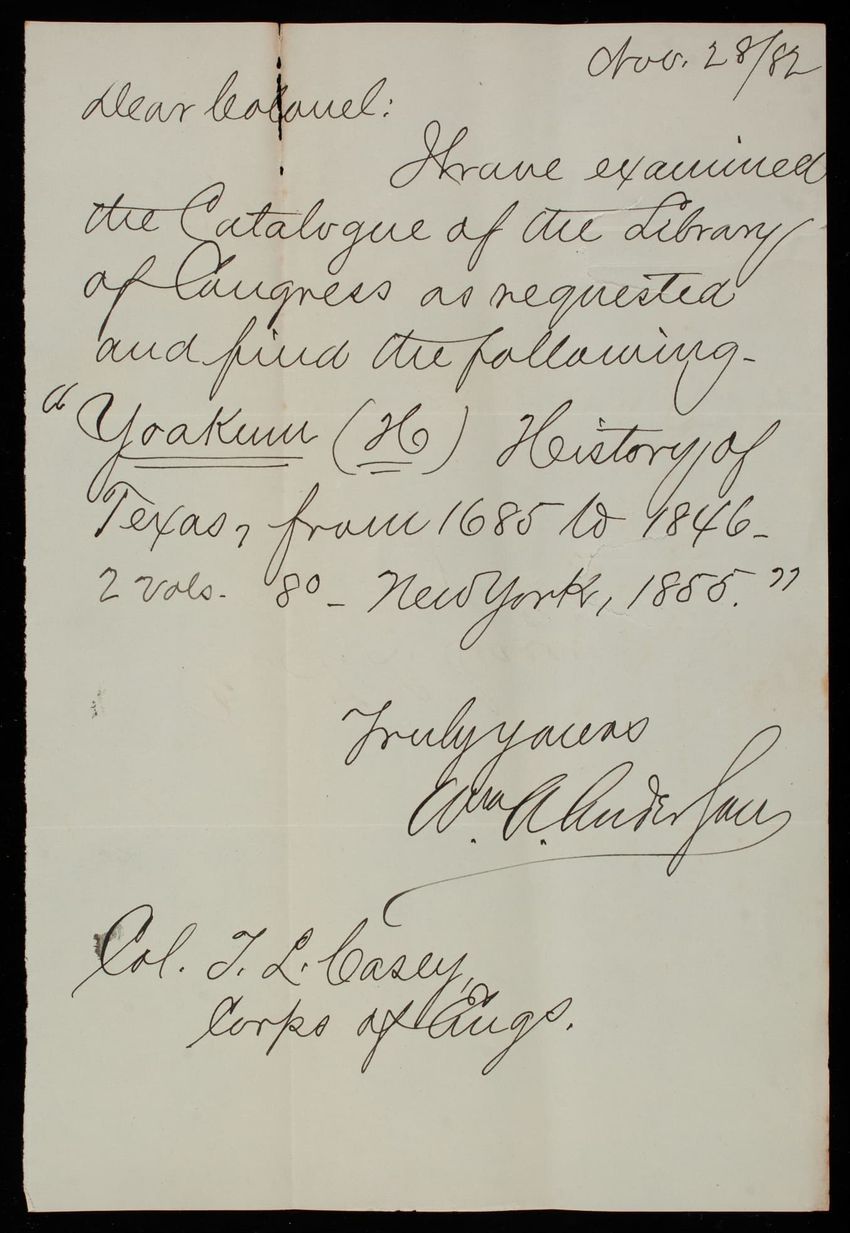 Nov. 28/82
Dear Colonel:
I have examined
the Catalogue of the Library
of Congress as requested
and find the following-
"Yoakum (H) History of
Texas, from 1685 to 1846-
2 vols. 8° - New York, 1855."
Truly yours
Wm. A. Anderson
Col. T. L. Casey,
Corps of Engs.